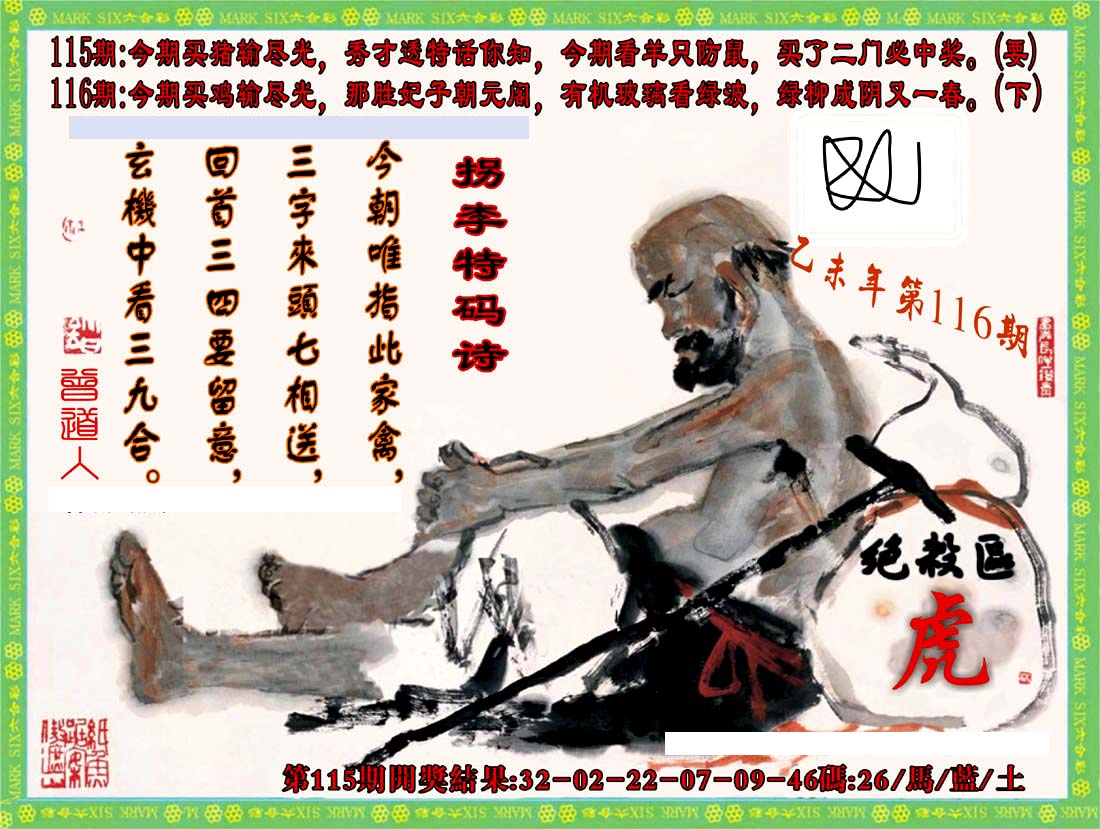 115期:今期买猪输尽光，秀才透特话你知，今期看羊只防鼠，买了二门必中奖。(要)
116期:今期买鸡输尽光，那胜妃子朝元阁，有机玻璃看绿波，绿柳成阴又一春。(下)
拐李特码诗
今朝唯指此家禽，
三字來頭七相送，
回首三四要留意，
玄機中看三九合。
曾道人
乙未年第116期
绝殺區
虎
第115期開獎結果:32-02-22-07-09-46碼:26/馬/藍/土
MARK SIX六合彩